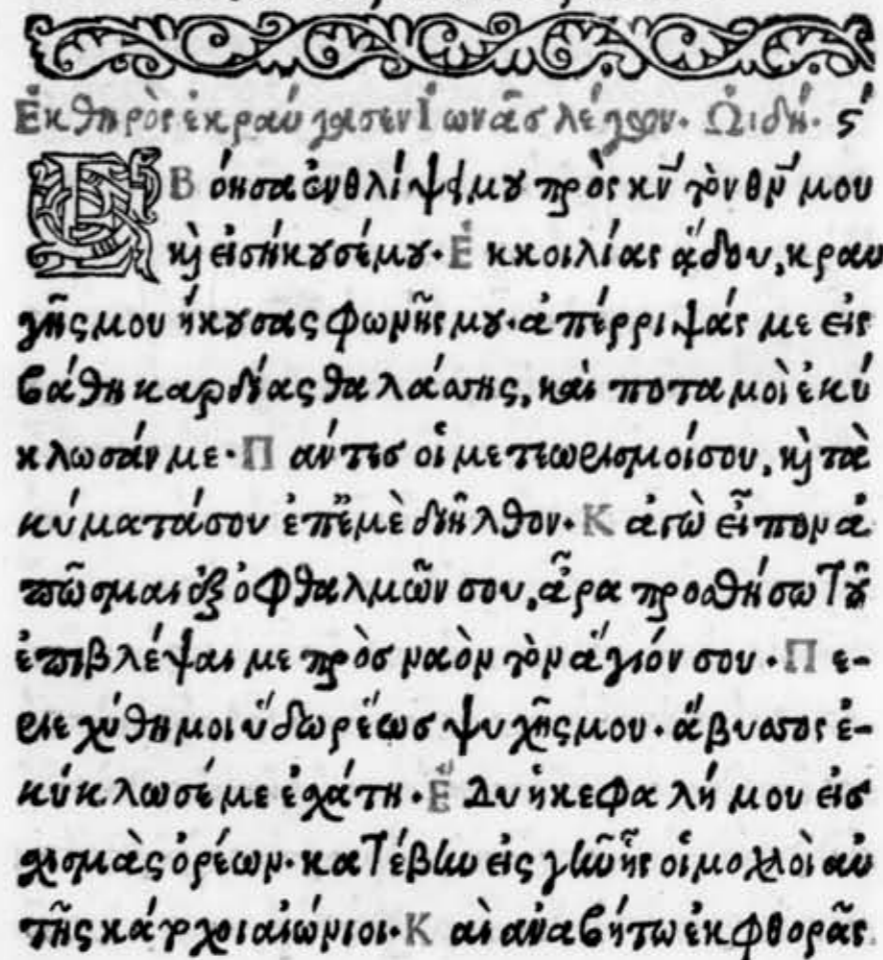 Ἐκ θηρὸς ἐκραύγασεν Ἰωνᾶς λέγων. Ὠιδή. ς́
Ἐβόησα ἐν θλίψει μου πρὸς κν̄ τὸν θν̄ μου
κὶ εἰσήκουσέ μου. Ἐκ κοιλίας ᾅδου, κραυ
γῆς μου ἤκουσας φωνῆς μου. ἀπέρριψάς με εἰς
βάθη καρδίας θαλάσσης, καὶ ποταμοὶ ἐκύ
κλωσάν με. Πάντες οἱ μετεωρισμοί σου, κὶ τὰ
κύματά σου ἐπ' ἐμὲ διῆλθον. Κἀγὼ εἶπον ἀ
πῶσμαι ἐξ ὀφθαλμῶν σου, ἆρα προσθήσω τοῦ
ἐπιβλέψαι με πρὸς ναὸν τὸν ἅγιόν σου. Πε-
ριεχύθη μοι ὕδωρ ἕως ψυχῆς μου. ἄβυσσος ἐ-
κύκλωσέ με ἐσχάτη. Ἔδυ ἡ κεφαλή μου εἰς
σχισμὰς ὀρέων. κατέβην εἰς γῆν ἧς οἱ μοχλοὶ αὐ
τῆς κάτοχοι αἰώνιοι. Καὶ ἀναβήτω ἐκ φθορᾶς